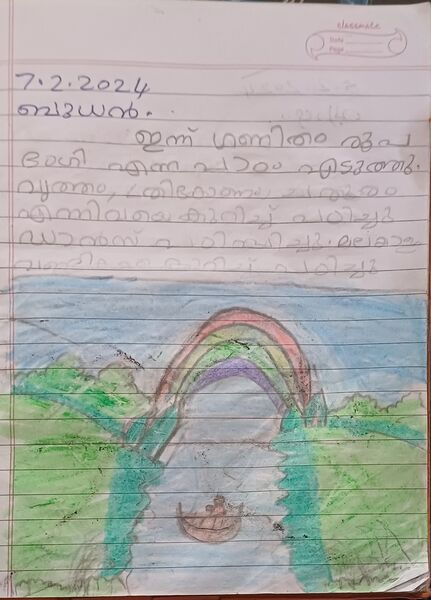 classmate
Date
Page
7.2.2024
ബുധൻ.
ഇന്ന് ഗണിതം രൂപ
ഭംഗി എന്ന പാഠം എടുത്തു.
വൃത്തം, ത്രികോണം, ചതുരം
എന്നിവയെ കുറിച്ച് പഠിച്ചു
ഡാൻസ് പഠിപ്പിച്ചു.
കുറിച്ച് പഠിച്ചു